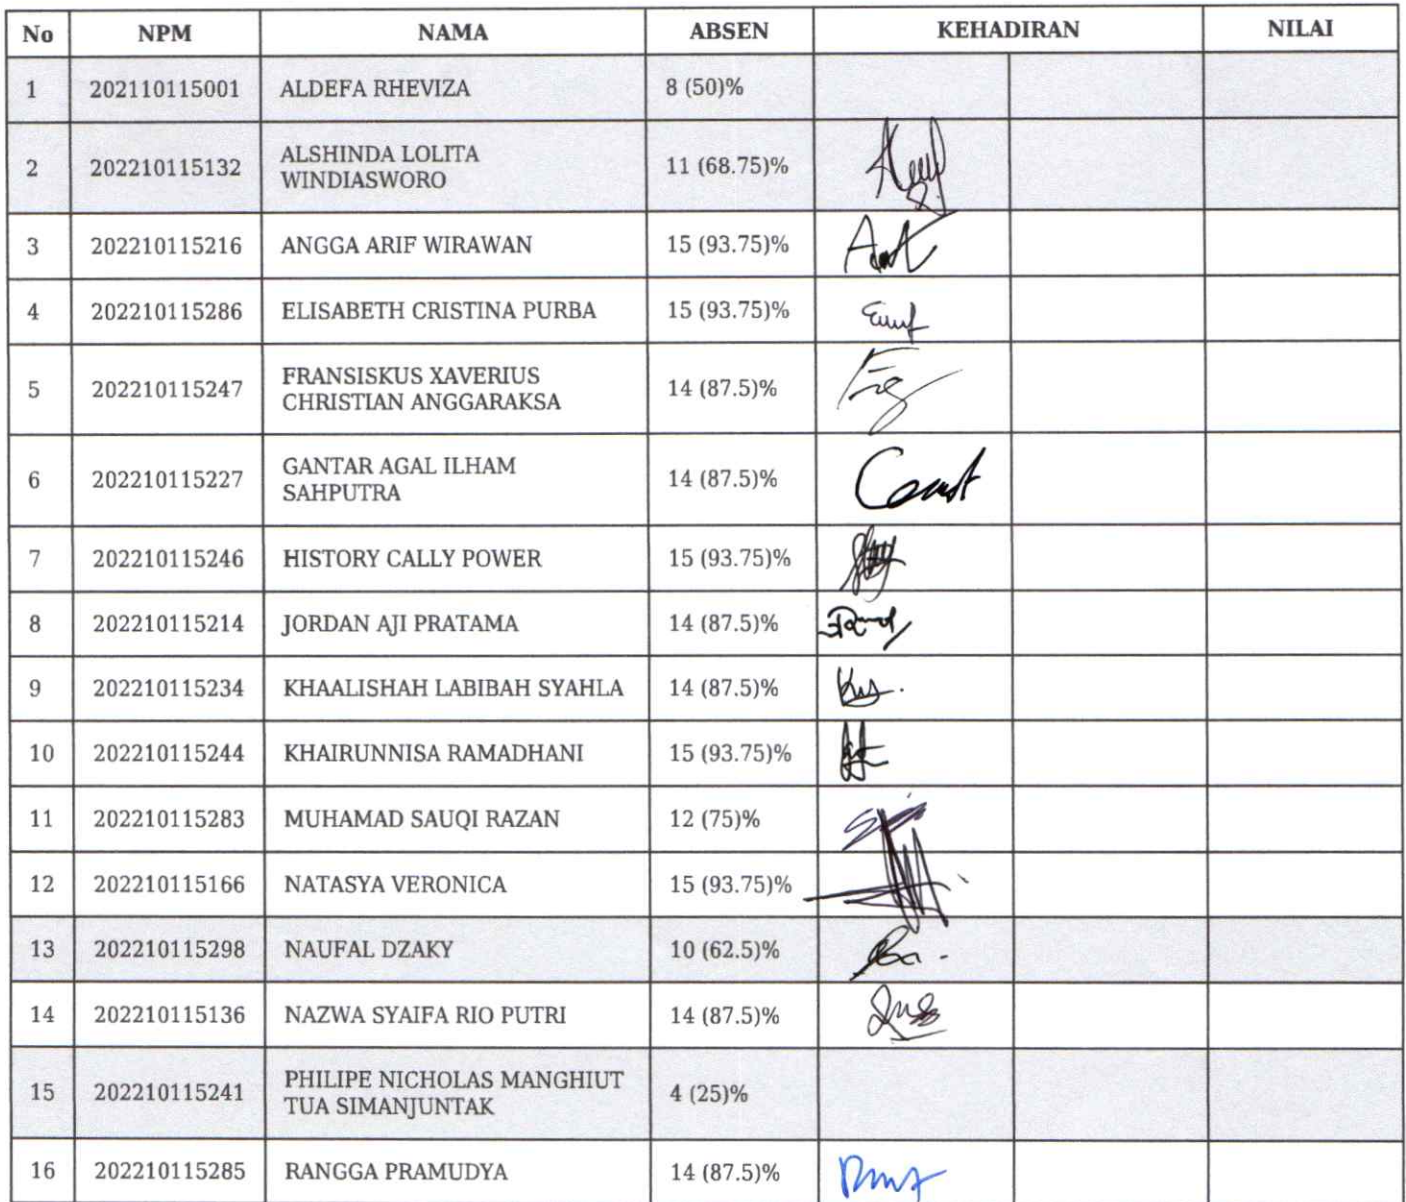 No NPM NAMA ABSEN KEHADIRAN NILAI
1 202110115001 ALDEFA RHEVIZA 8 (50)%
2 202210115132 ALSHINDA LOLITA WINDIASWORO 11 (68.75)%
3 202210115216 ANGGA ARIF WIRAWAN 15 (93.75)%
4 202210115286 ELISABETH CRISTINA PURBA 15 (93.75)%
5 202210115247 FRANSISKUS XAVERIUS CHRISTIAN ANGGARAKSA 14 (87.5)%
6 202210115227 GANTAR AGAL ILHAM SAHPUTRA 14 (87.5)%
7 202210115246 HISTORY CALLY POWER 15 (93.75)%
8 202210115214 JORDAN AJI PRATAMA 14 (87.5)%
9 202210115234 KHAALISHAH LABIBAH SYAHLA 14 (87.5)%
10 202210115244 KHAIRUNNISA RAMADHANI 15 (93.75)%
11 202210115283 MUHAMAD SAUQI RAZAN 12 (75)%
12 202210115166 NATASYA VERONICA 15 (93.75)%
13 202210115298 NAUFAL DZAKY 10 (62.5)%
14 202210115136 NAZWA SYAIFA RIO PUTRI 14 (87.5)%
15 202210115241 PHILIPE NICHOLAS MANGHIUT TUA SIMANJUNTAK 4 (25)%
16 202210115285 RANGGA PRAMUDYA 14 (87.5)%